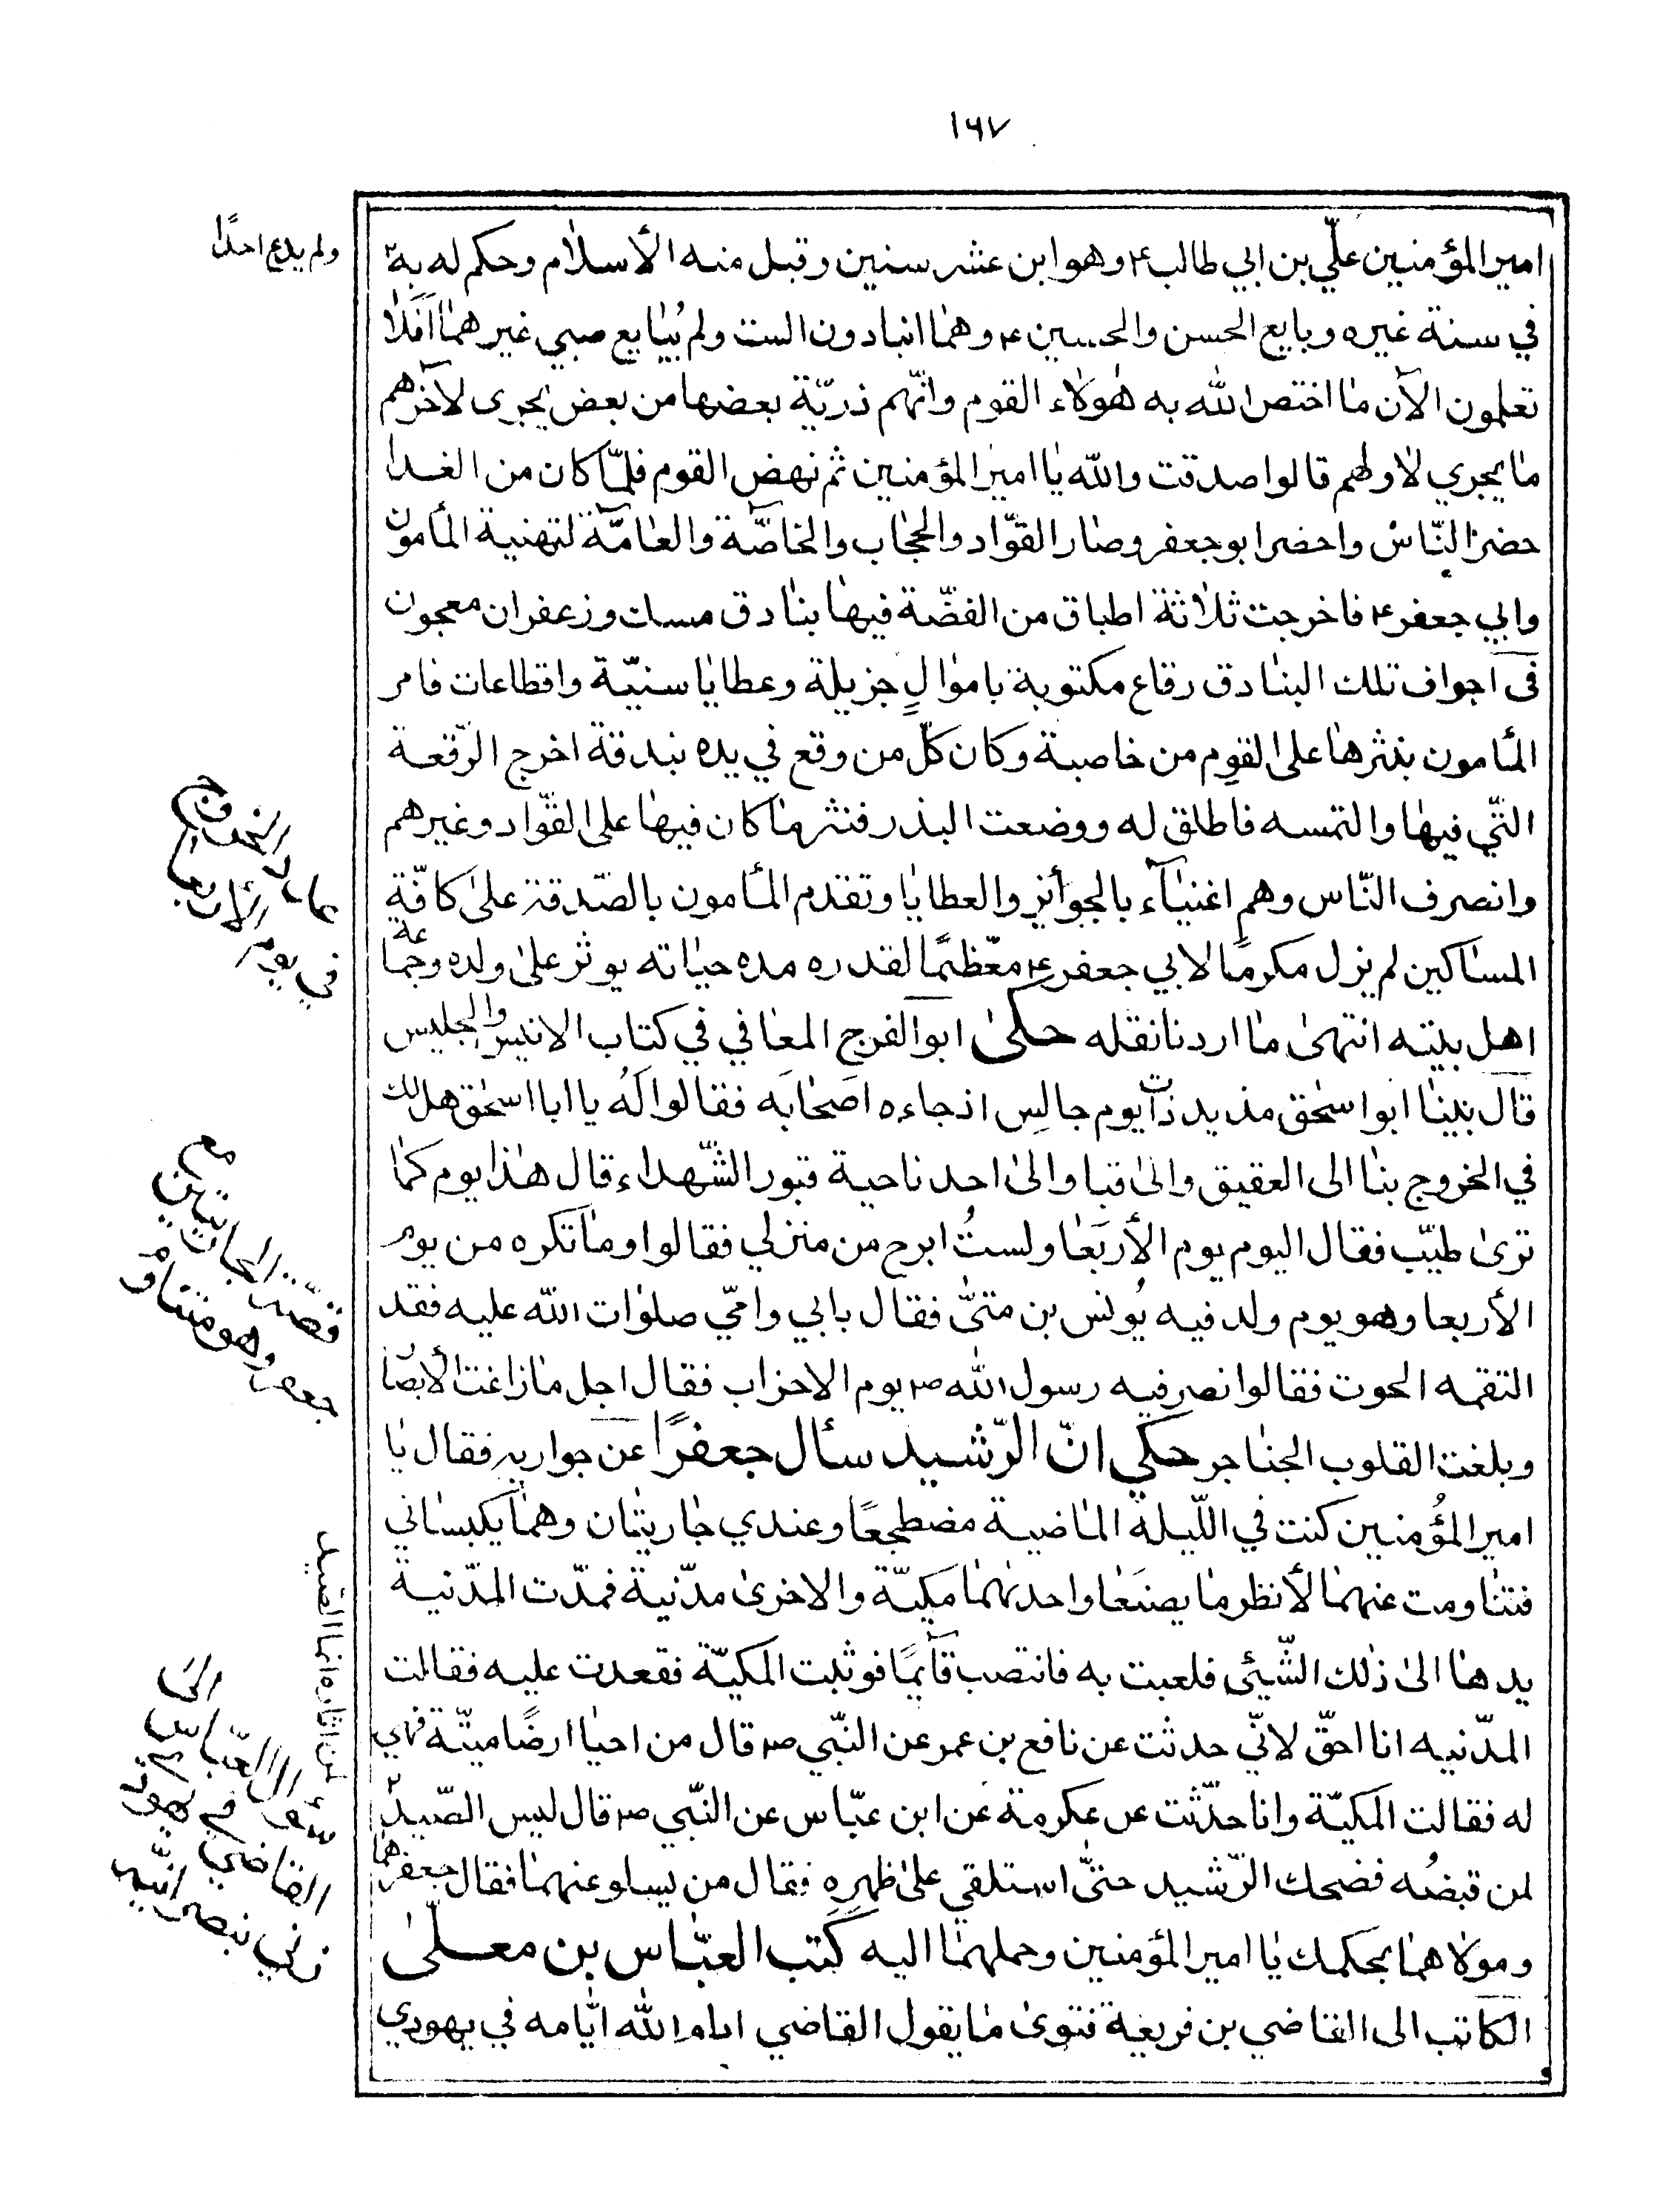 ١٦٧
امير المؤمنين عليّ بن ابي طالب ع وهو ابن عشر سنين وقبل منه الأسلام وحكم له به
ولم يدع احدًا
في سنة غيره وبايع الحسن والحسين ع وهما ابنا دون الست ولم يُبايع صبي غيرهما افلا
تعلمون الآن ما اختص الله به هؤلاء القوم وانّهم ذريّة بعضها من بعض يجرى لآخرهم
ما يجري لاولهم قالوا صدقت والله يا امير المؤمنين ثم نهض القوم فلمّا كان من الغدا
حضر النّاس واحضر ابو جعفر وصار القوّاد والحجاب والخاصّة والعامّة لتهنية المأمون
وابي جعفر ع فاخرجت ثلاثة اطباق من الفضّة فيها بنادق مسك وزعفران معجون
فى اجواف تلك البنادق رقاع مكتوبة باموالٍ جزيلة وعطايا سنيّة واقطاعات فامر
المأمون بنثرها على القوم من خاصية وكان كلّ من وقع في يده بندقة اخرج الرّقعة
التّي فيها والتمسه فاطلق له ووضعت البذر فنثر ما كان فيها على القوّاد وغيرهم
وانصرف النّاس وهم اغنيآء بالجوأئز والعطايا وتقدم المأمون بالصّدقة على كافّة
المساكين لم يزل مكرمًا لابي جعفر ع معظّمًا لقدره مده حياته يوثر على ولده وجماعة
اهل بيته انتهى ما اردنا نقله حكى ابو الفرج المعافي في كتاب الانيس والجليس
عادة الخروج
في يوم الأربعا
قال بينا ابو اسحق مذيد ذات يوم جالس اذ جاءه اصحابه فقالوا لَهُ يا ابا اسحق هل لك
في الخروج بنا الى العقيق والى قبا والى احد ناحية قبور الشّهداء قال هذا يوم كما
ترى طيّب فقال اليوم يوم الأربَعا ولستُ ابرح من منزلي فقالوا وما تكره من يوم
الأربعا وهو يوم ولد فيه يُونس بن متىّ فقال بابي وامّي صلوات الله عليه فقد
التقمه الحوت فقالوا نصر فيه رسول الله ص يوم الاحزاب فقال اجل ما زاغت الأبصار
وبلغت القلوب الحناجر حكي انّ الرّشيد سأل جعفرًا عن جواريه فقال يا
قصّة الجاريتين مع
جعفر وهو متناوم
امير المؤمنين كنت في اللّيلة الماضية مضطجعًا وعندي جاريتان وهما يكبساني
فتناومت عنهما لأنظر ما يصنَعا واحدتهما مكيّة والاخرى مدّنية فمدّت المدّنية
يدها الى ذلك الشّيئى فلعبت به فانتصب قآيمًا فوثبت المكيّة فقعدت عليه فقالت
المدّنيه انا احقّ لانّي حدثت عن نافع بن عمر عن النّبي ص قال من احيا ارضًا ميتّة فهي
له فقالت المكيّة وانا حدّثت عن عكرمة عن ابن عبّاس عن النّبي ص قال ليس الصّيد
لمن اثاره انما الصّيد
لمن قبضُه فضحك الرّشيد حتىّ استلقي على ظهره فقال من يسلو عنهما فقال جعفر هما
ومولاهما بحكمك يا امير المؤمنين وحملهما اليه كَتب العبّاس بن معلّى
الكاتب الى القاضي بن قريعة فتوى ما يقول القاضي ادام الله ايّامه في يهودي
سؤال العبّاس الى
القاضي في يهودي
زني بنصرانيّه
و